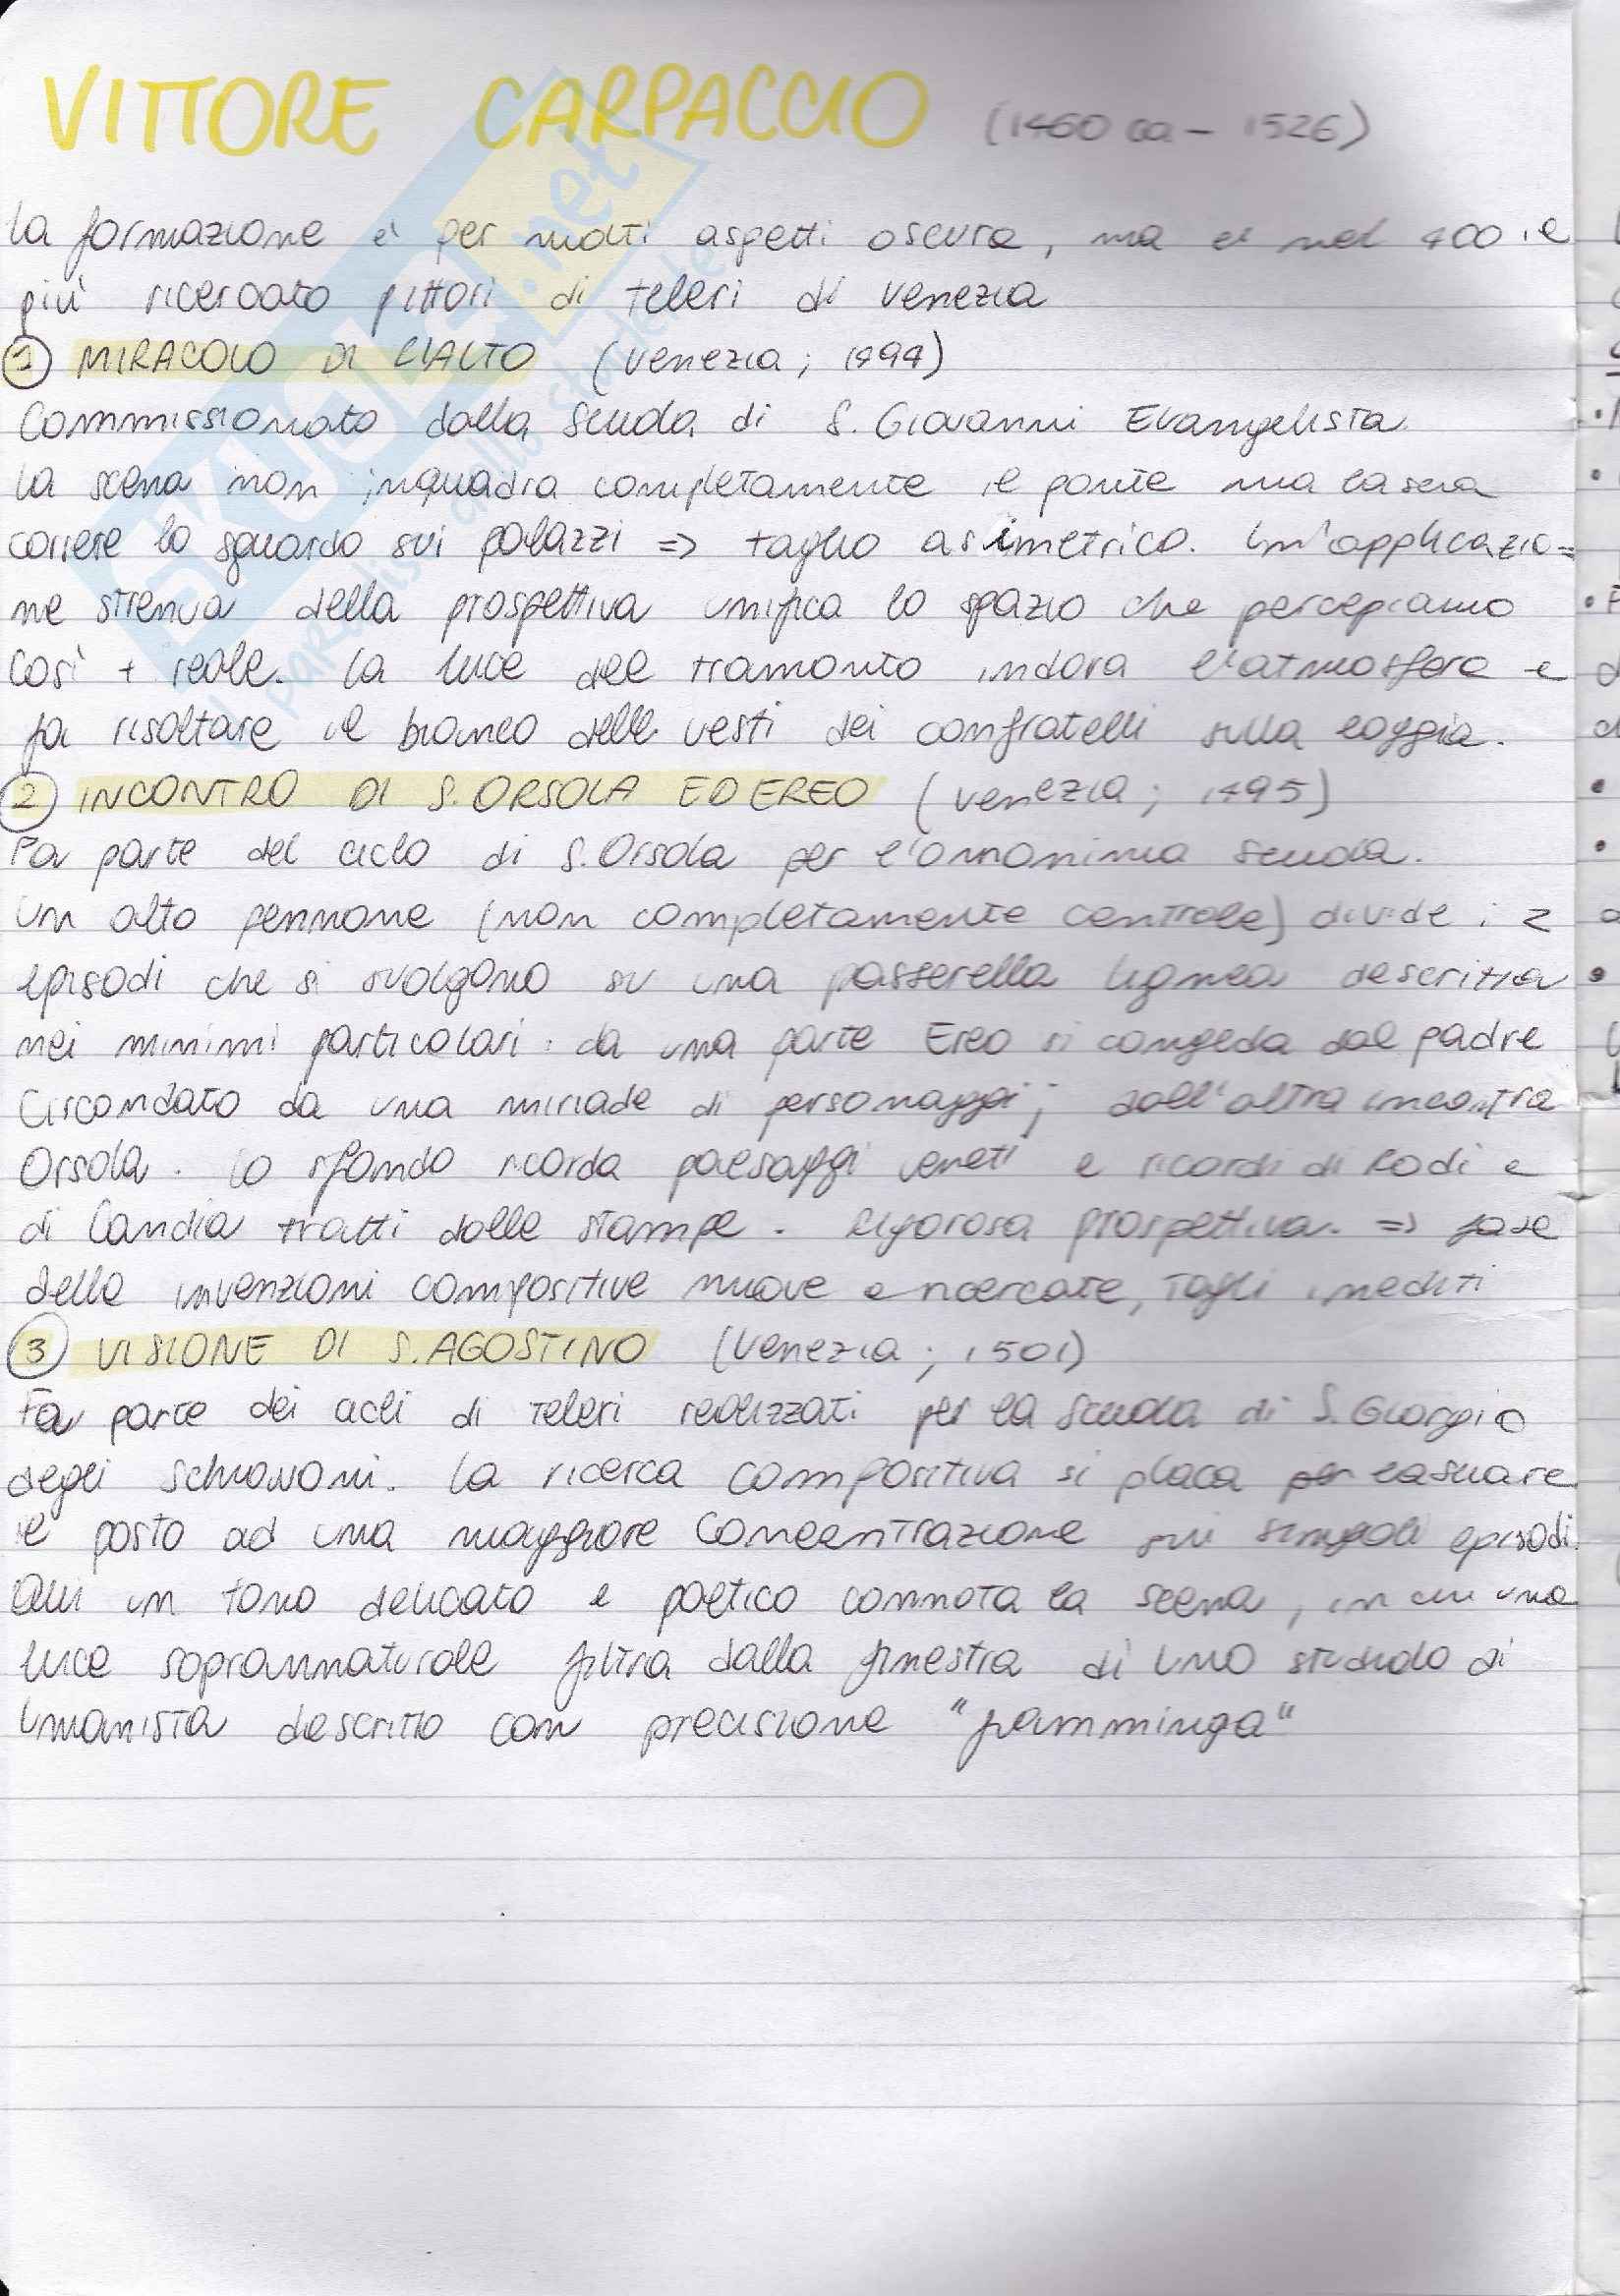 VITTORE CARPACCIO (1460 ca - 1526)
La formazione è per molti aspetti oscura, ma è nel 400 il
più ricercato pittori di teleri di Venezia
1 MIRACOLO DI RIALTO (Venezia; 1494)
Commissionato dalla Scuola di S. Giovanni Evangelista.
La scena non inquadra completamente il ponte ma lascia
correre lo sguardo sui palazzi => taglio asimetrico. Un'applicazio=
ne strenua della prospettiva unifica lo spazio che percepiamo
così + reale. La luce del tramonto indora l'atmosfera e
fa risaltare il bianco delle vesti dei confratelli sulla loggia.
2 INCONTRO DI S. ORSOLA ED EREO (Venezia; 1495)
Fa parte del ciclo di S. Orsola per l'omonima scuola.
Un alto pennone (non completamente centrale) divide i 2
episodi che si svolgono su una passerella lignea descritta
nei minimi particolari: da una parte Ereo si congeda dal padre
circondato da una miriade di personaggi; dall'altra incontra
Orsola. Lo sfondo ricorda paesaggi veneti e ricordi di Rodi e
di Candia tratti dalle stampe. Rigorosa prospettiva. => fase
delle invenzioni compositive nuove e ricercate, tagli inediti
3 VISIONE DI S. AGOSTINO (Venezia; 1501)
Fa parte dei cicli di teleri realizzati per la scuola di S. Giorgio
degli Schiavoni. La ricerca compositiva si placa per lasciare
il posto ad una maggiore concentrazione sui singoli episodi.
Qui un tono delicato e poetico connota la scena, in cui una
luce soprannaturale filtra dalla finestra di uno studiolo di
umanista descritto con precisione "fiamminga"
SKUOLA.net
il paradiso dello studente